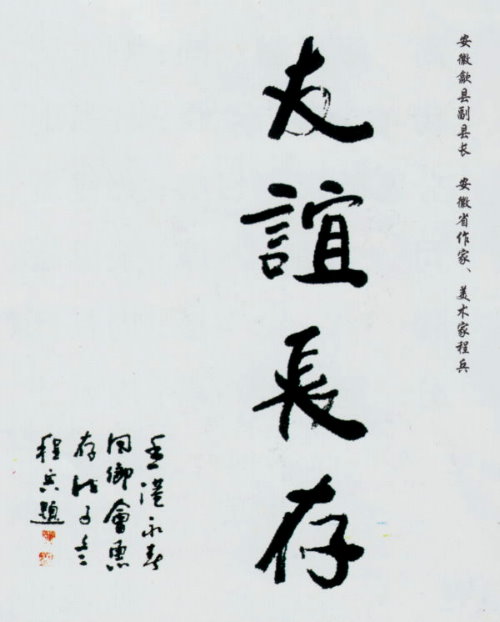 安徽歙县副县长 安徽省作家、美术家程兵
友誼長存
香港永春
同鄉會惠
存
程兵題